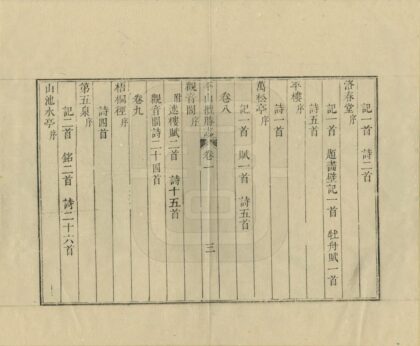 記一首 詩二首
洛春堂序
記一首 題畫壁記一首 牡丹賦一首
詩五首
平樓序
詩一首
萬松亭序
記一首 賦一首 詩五首
卷八
平山攬勝志 卷一 三
觀音閣序
附迷樓賦二首 詩十五首
觀音閣詩二十四首
卷九
梧桐徑序
詩四首
第五泉序
記二首 銘二首 詩二十六首
山池水亭序